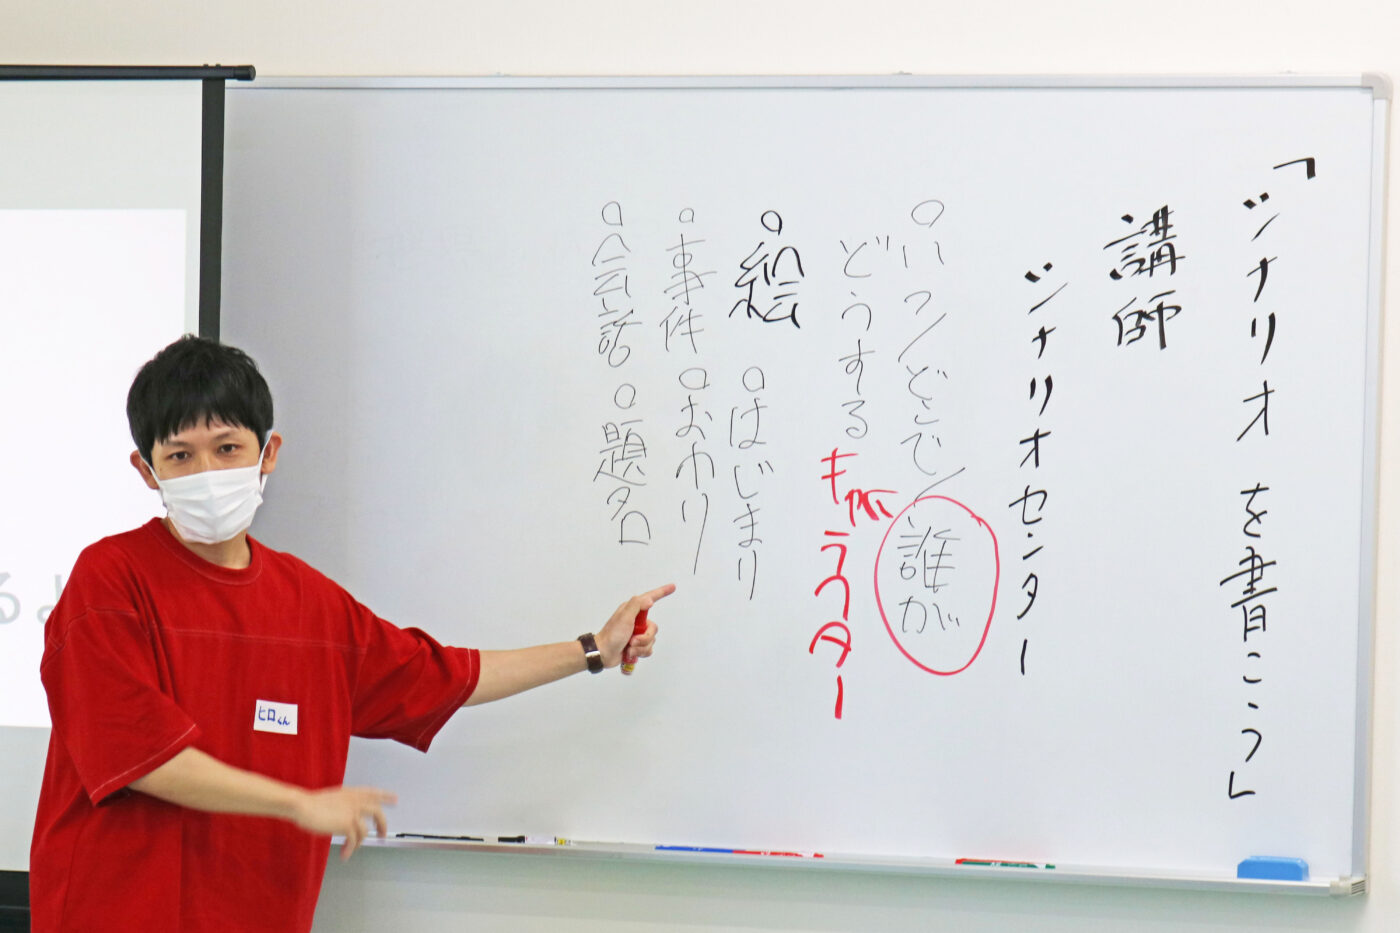 「シナリオを書こう」
講師
シナリオセンター
○いつ/どこで/誰が
どうする
キャラクター
○絵 ○はじまり
○事件 ○おわり
○会話 ○題名
ヒロくん
る